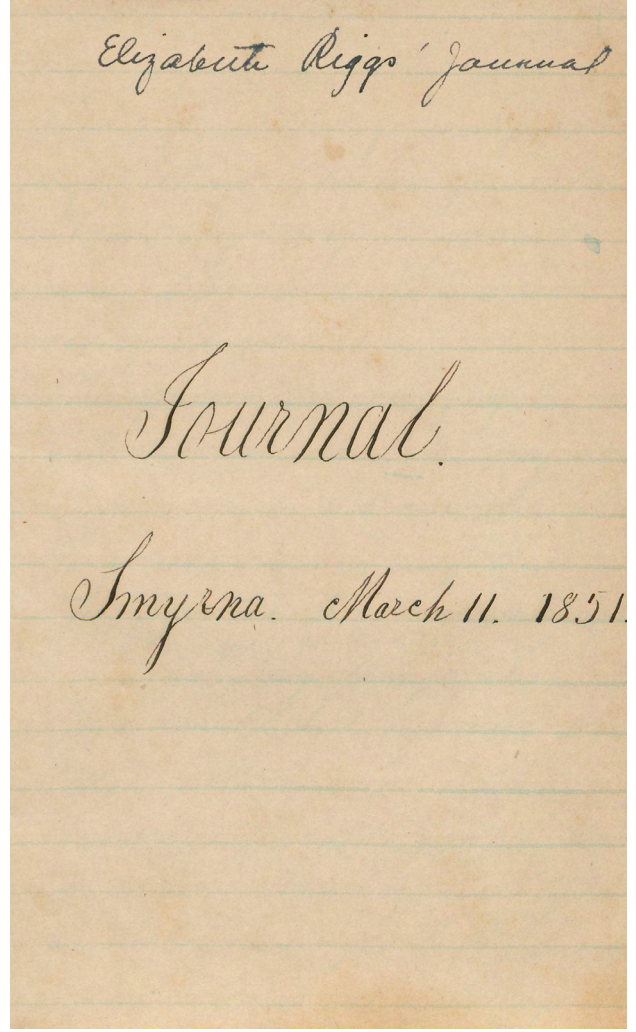 Elizabeth Riggs' Journal
Journal.
Smyrna. March 11. 1851.